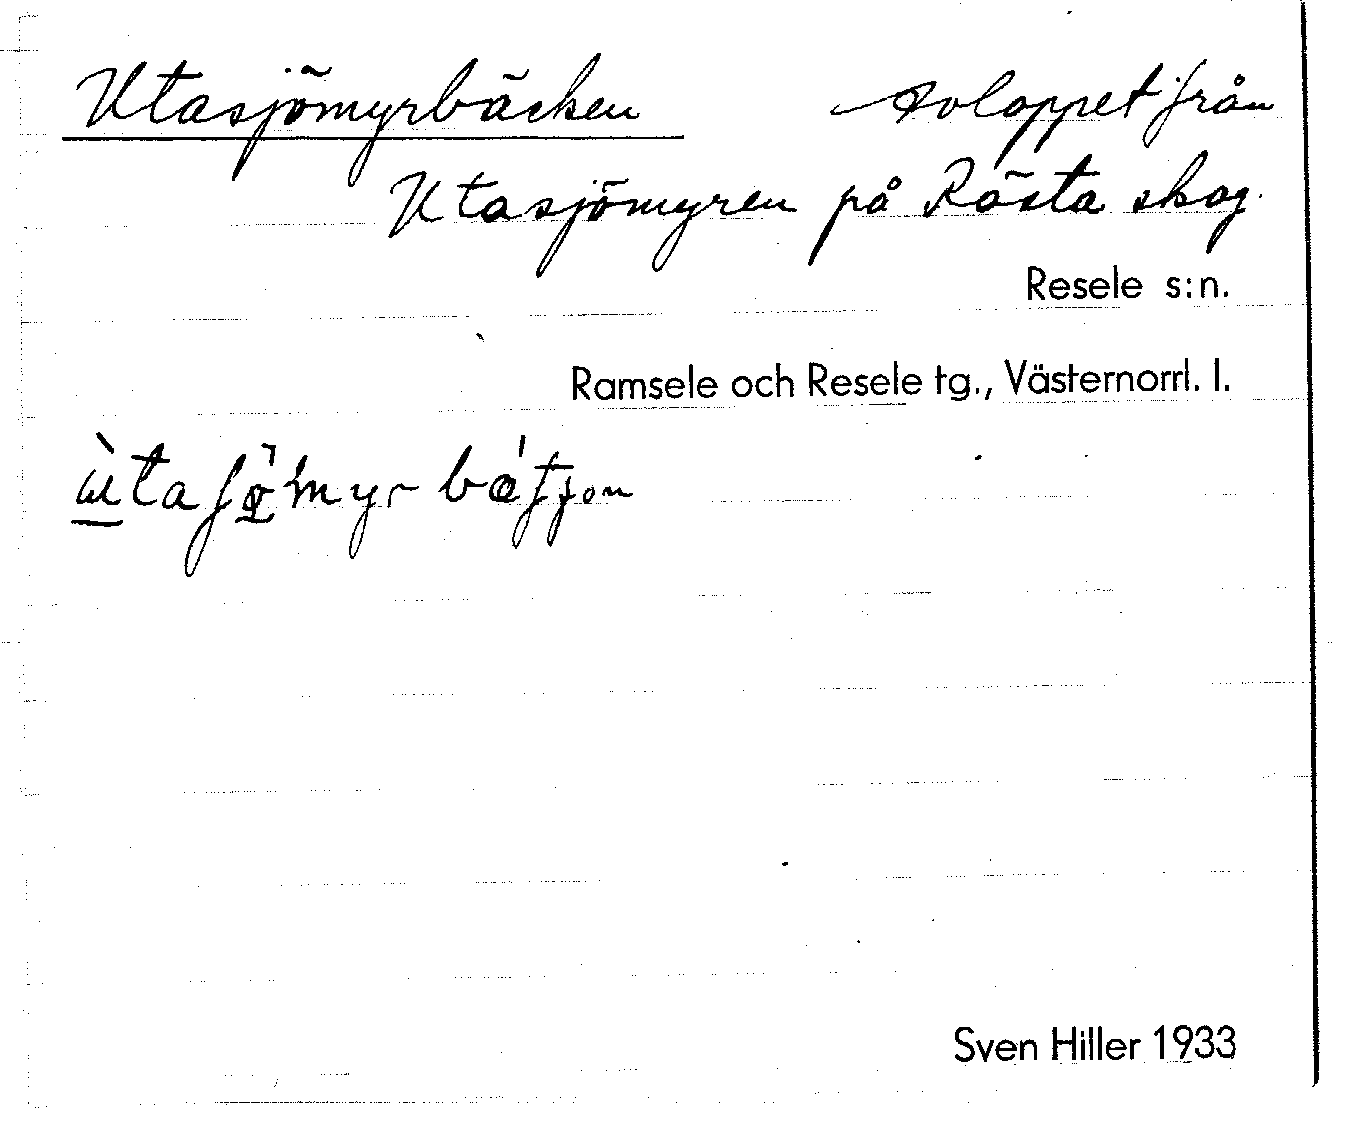 Utasjömyrbäcken Avloppet från
Utasjömyren på Rästa skog.
Resele s:n.
Ramsele och Resele tg., Västernorrl. l.
Sven Hiller 1933